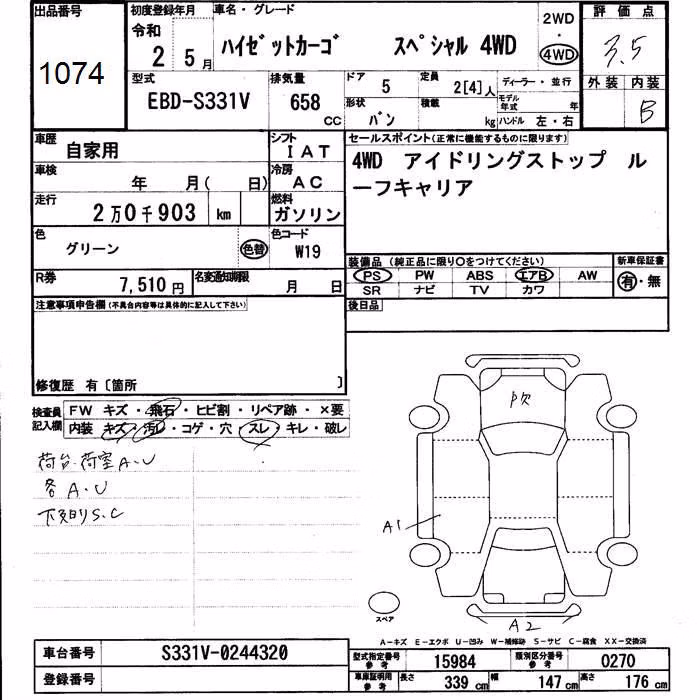 出品番号
1074
初度登録年月
令和
2 5月
車名・グレード
ハイゼットカーゴ スペシャル 4WD
2WD
・
4WD
評価点
3.5
外装 内装
B
型式
EBD-S331V
排気量
658
CC
ドア
5
定員
2[4]人
ディーラー・並行
形状
バン
積載
kg
モデル年式
年
ハンドル 左・右
車歴
自家用
シフト
IAT
車検
年 月( 日)
冷房
AC
走行
2万0千903 km
燃料
ガソリン
色
グリーン
色替
色コード
W19
R券
7,510円
名変通知期限
月 日
セールスポイント(正常に機能するものに限ります)
4WD アイドリングストップ ル
ーフキャリア
装備品 (純正品に限り○をつけてください)
PS PW ABS エアB AW
SR ナビ TV カワ
新車保証書
有・無
後日品
注意事項申告欄(不具合内容等は具体的に記入して下さい)
修復歴 有〔箇所 〕
検査員
記入欄
FW キズ・飛石・ヒビ割・リペア跡・×要
内装 キズ・汚レ・コゲ・穴・スレ・キレ・破レ
荷台・荷室A・U
各A・U
下廻りS、C
A1
A2
スペア
A-キズ E-エクボ U-凹み W-補修跡 S-サビ C-腐食 XX-交換済
車台番号
S331V-0244320
登録番号
型式指定番号
参考
15984
類別区分番号
参考
0270
車庫証明用
参考
長さ
339 cm
幅
147 cm
高さ
176 cm